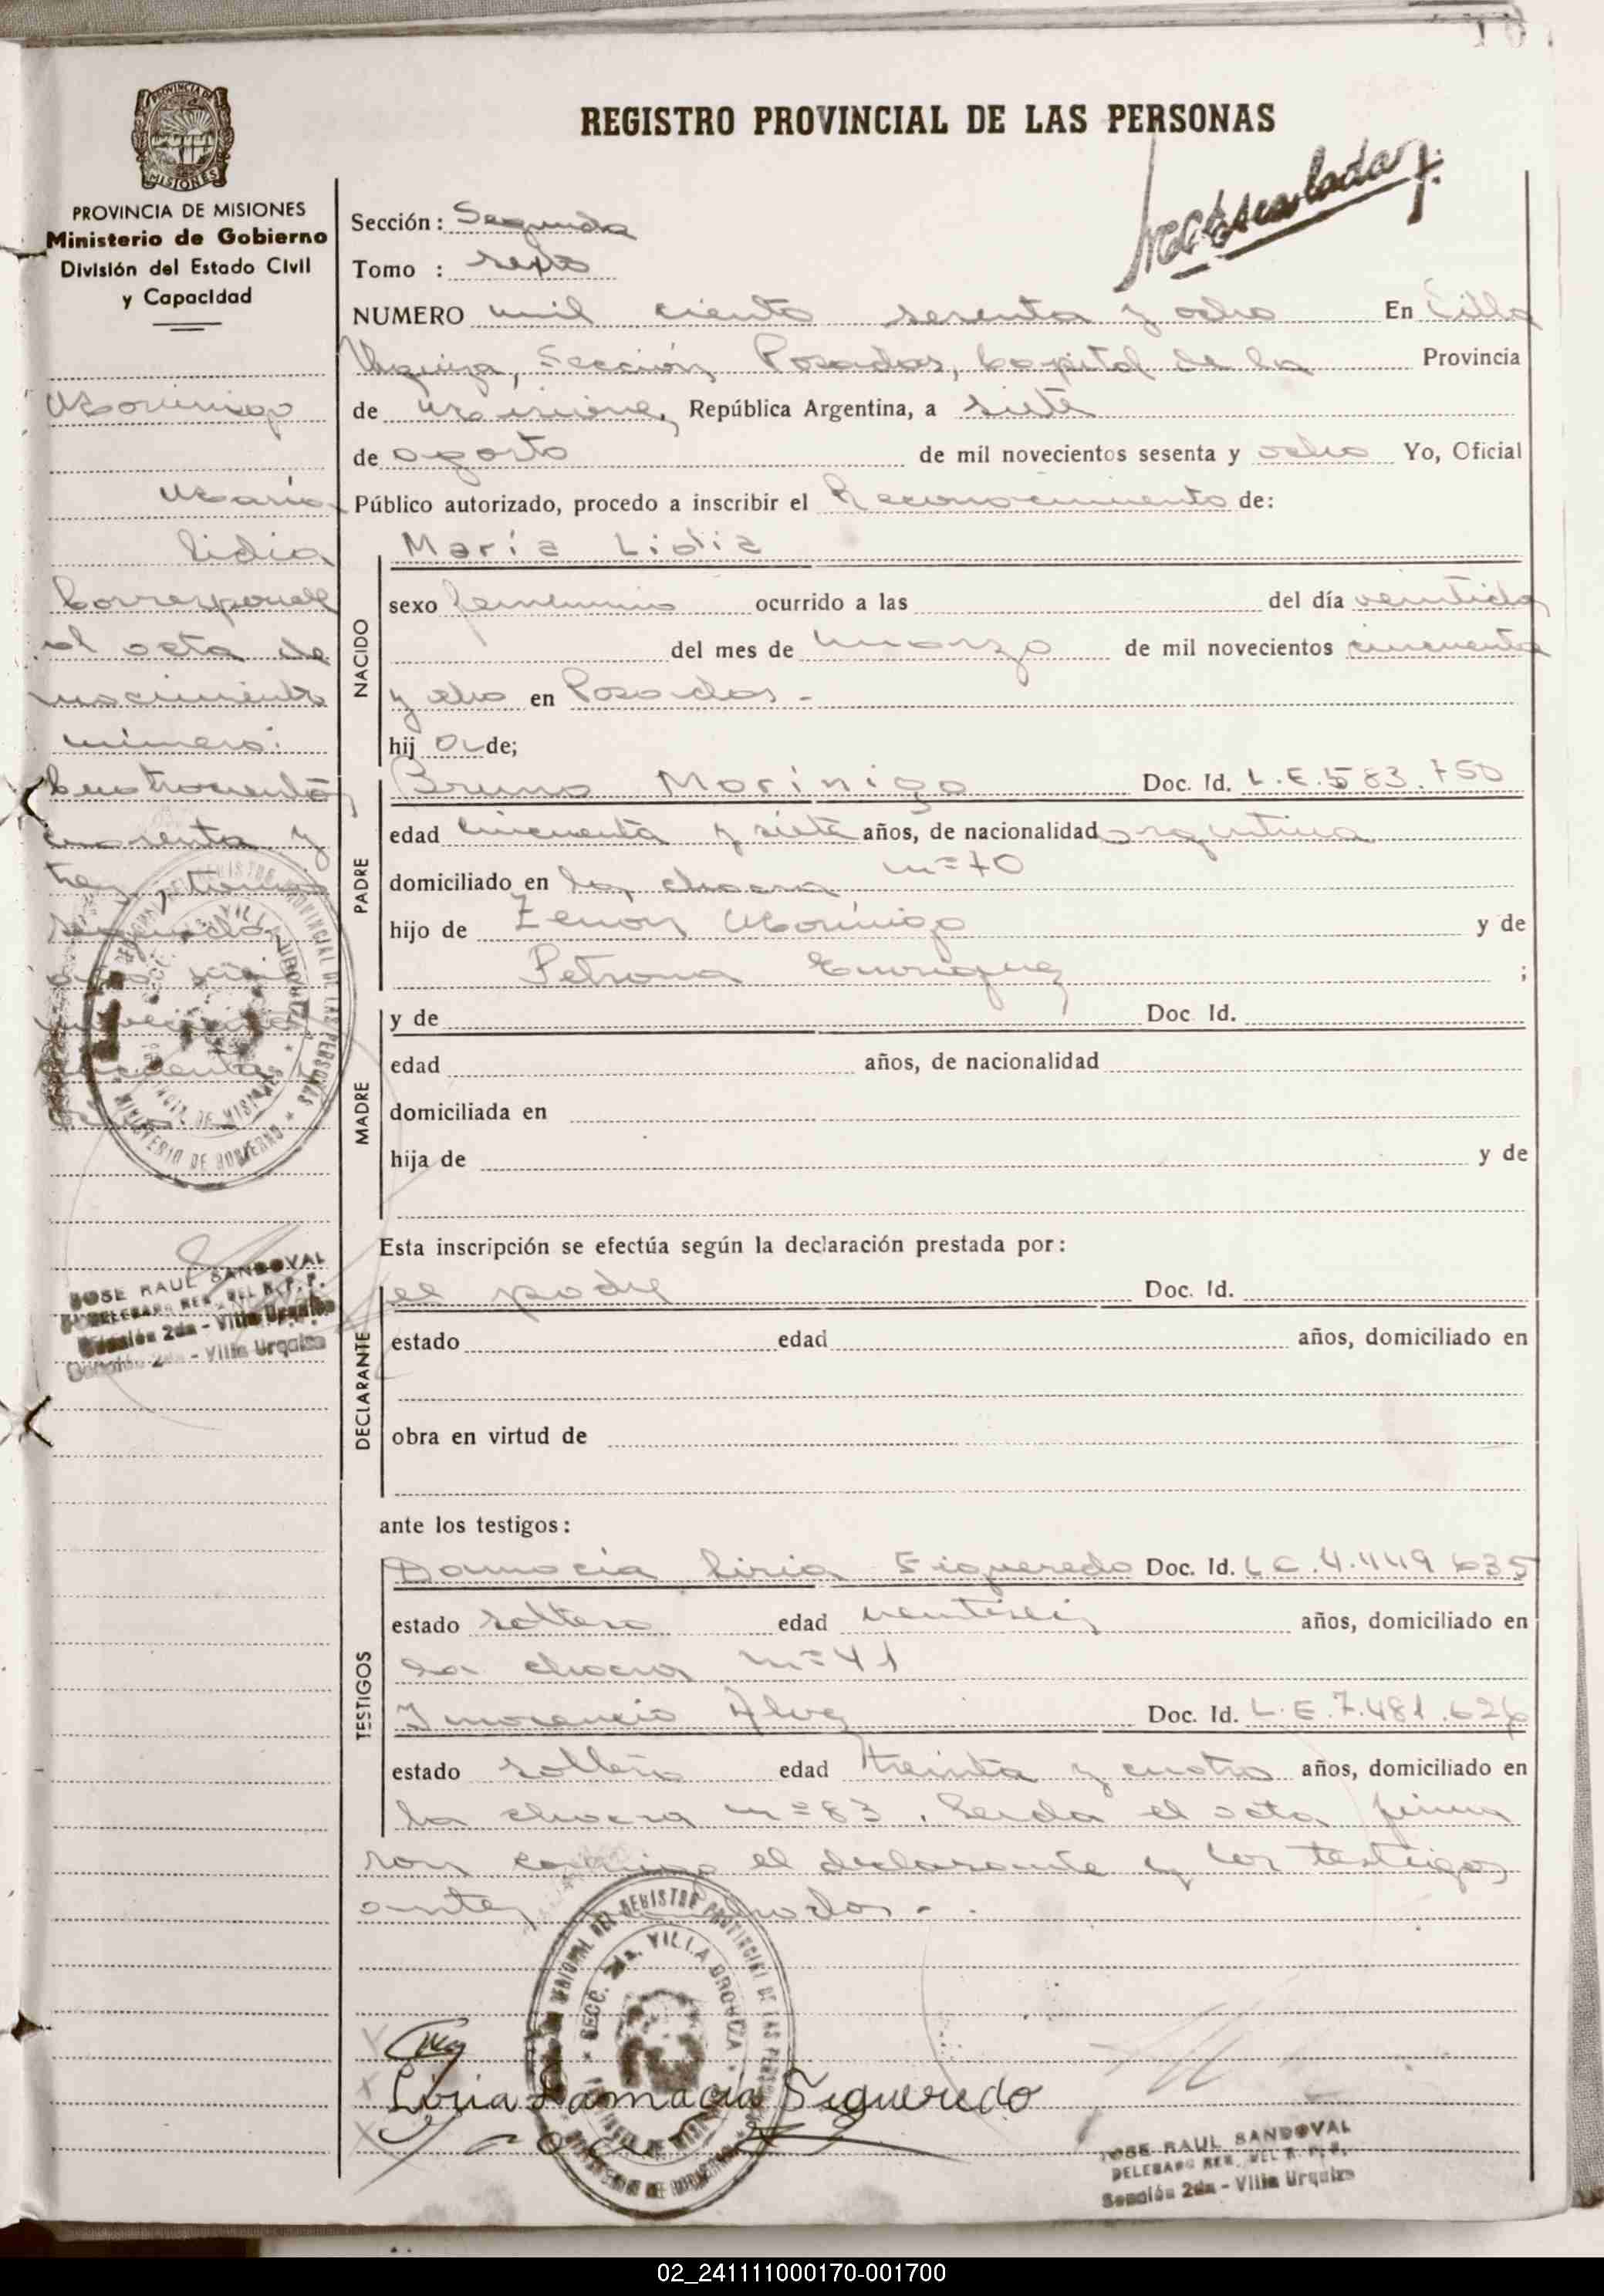 REGISTRO PROVINCIAL DE LAS PERSONAS
PROVINCIA DE MISIONES
Ministerio de Gobierno
División del Estado Civil
y Capacidad
Morinigo
María
Lidia
Corresponde
al acta de
nacimiento
número:
cuatrocientos
cuarenta y
tres, tomo
segundo,
año mil
novecientos
cincuenta y
ocho
JOSE RAUL SANDOVAL
Sección 2da - Villa Urquiza
Sección: Segunda
Tomo : sexto
NUMERO mil ciento sesenta y ocho En Villa
Urquiza, Sección Posadas, Capital de la Provincia
de Misiones, República Argentina, a siete
de agosto de mil novecientos sesenta y ocho Yo, Oficial
Público autorizado, procedo a inscribir el Reconocimiento de:
NACIDO
María Lidia
sexo femenino ocurrido a las del día veintidos
del mes de marzo de mil novecientos cincuenta
y ocho en Posadas.-
hij a de;
PADRE
Bruno Morínigo Doc. Id. L.E.583.750
edad cincuenta y siete años, de nacionalidad argentina
domiciliado en la chacra nº 70
hijo de Zenon Morinigo y de
Petrona Enriquez ;
MADRE
y de Doc Id.
edad años, de nacionalidad
domiciliada en
hija de y de
Esta inscripción se efectúa según la declaración prestada por:
DECLARANTE
el padre Doc. Id.
estado edad años, domiciliado en
obra en virtud de
ante los testigos:
TESTIGOS
Damacia Liria Sigueredo Doc. Id. L C. 4.449 635
estado soltera edad veintiseis años, domiciliado en
la chacra nº 41
Inocencio Alvez Doc. Id. L. E. 7.481.626
estado soltero edad treinta y cuatro años, domiciliado en
la chacra nº 83. Leida el acta firma
ron conmigo el declarante y los testigos
antes nombrados.-
SECC. 2da. VILLA URQUIZA
Liria Damacia Sigueredo
JOSE RAUL SANDOVAL
DELEGADO REG. DEL R. P. P.
Sección 2da - Villa Urquiza
02_241111000170-001700